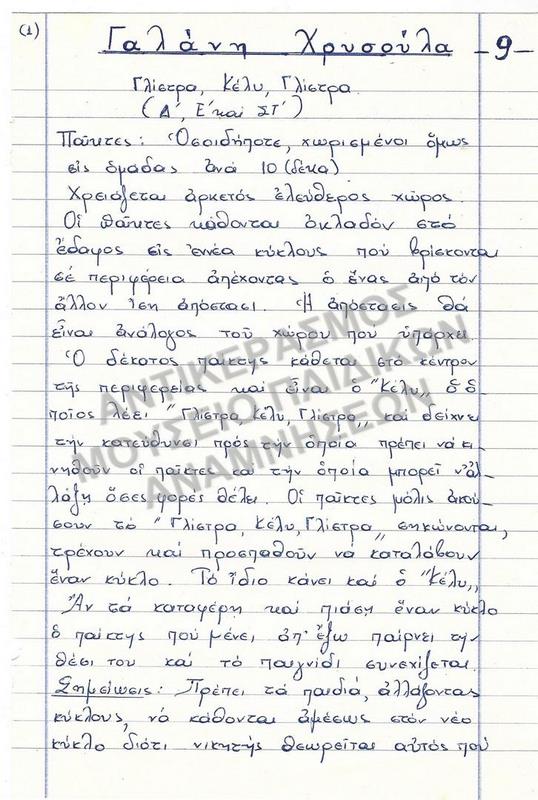 (1)
Γαλάνη Χρυσούλα -9-
Γλίστρα, Κέλυ, Γλίστρα
(Δ', Ε' καί ΣΤ')
Παῖκτες: Ὁσοιδήποτε, χωρισμένοι ὅμως
εἰς ὁμάδας ἀνά 10 (δέκα)
Χρειάζεται ἀρκετός ἐλεύθερος χῶρος.
Οἱ παῖκτες κάθονται ὀκλαδόν στό
ἔδαφος εἰς ἐννέα κύκλους πού βρίσκονται
σέ περιφέρεια ἀπέχοντας ὁ ἕνας ἀπό τόν
ἄλλον ἴση ἀπόστασι. Ἡ ἀπόστασις θά
εἶναι ἀνάλογος τοῦ χώρου πού ὑπάρχει.
Ὁ δέκατος παίκτης κάθεται στό κέντρον
τῆς περιφερείας καί εἶναι ὁ "Κέλυ,, ὁ ὁ-
ποῖος λέει "Γλίστρα, Κέλυ, Γλίστρα,, καί δείχνει
τήν κατεύθυνσι πρός τήν ὁποία πρέπει νά κι-
νηθοῦν οἱ παῖκτες καί τήν ὁποία μπορεῖ ν' ἀλ-
λάξη ὅσες φορές θέλει. Οἱ παῖκτες μόλις ἀκού-
σουν τό "Γλίστρα, Κέλυ, Γλίστρα,, σηκώνονται,
τρέχουν καί προσπαθοῦν νά καταλάβουν
ἕναν κύκλο. Τό ἴδιο κάνει καί ὁ "Κέλυ,,
Ἄν τά καταφέρη καί πιάση ἕναν κύκλο
ὁ παίκτης πού μένει ἀπ' ἔξω παίρνει τήν
θέσι του καί τό παιγνίδι συνεχίζεται.
Σημείωσις: Πρέπει τά παιδιά, ἀλλάζοντας
κύκλους, νά κάθονται ἀμέσως στόν νέο
κύκλο διότι νικητής θεωρεῖται αὐτός πού
ΑΝΤΙΚΕΡΑΣΜΟΣ
ΜΟΥΣΕΙΟ ΠΑΙΔΙΚΩΝ
ΑΝΑΜΝΗΣΕΩΝ